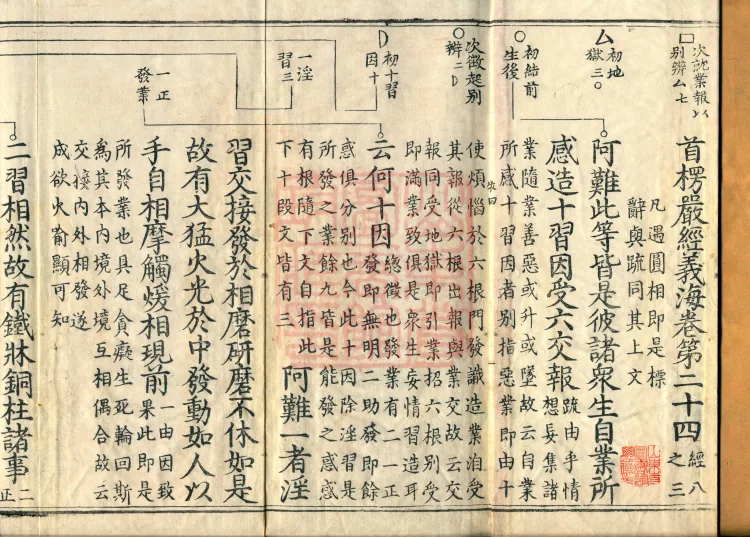 次就業報以
别辨厶七
首楞嚴經義海卷第二十四
經八
之三
凡遇圓相即是標
辭與疏同其上文
厶
初地
獄三○
阿難此等皆是彼諸衆生自業所
感造十習因受六交報
疏由乎情
想妄集諸
業隨業善惡或升或墜故云自業
初結前
生後
所感十習因者别指惡業即由十
使煩惱於六根門發識造業洎受
次徵起别
辨二D
其報從六根出報與業交故云交
報同受地獄即引業招六根别受
即滿業致俱是衆生妄情習造耳
D
初十習
因十
云何十因
總徵也發業有二一正
發即無明二助發即餘
惑俱分别也今此十因除淫習是
所發之業餘九皆是能發之惑惑
有根隨下文自指此
下十段文皆有三
一淫
習三
阿難一者淫
習交接發於相磨研磨不休如是
故有大猛火光於中發動如人以
一正
發業
手自相摩觸煖相現前
一由因致
果此即是
所發業也具足貪癡生死輪回斯
爲其本內境外境互相偶合故云
交接內外相發遂
成欲火喻顯可知
二習相然故有鐵牀銅柱諸事
二
正